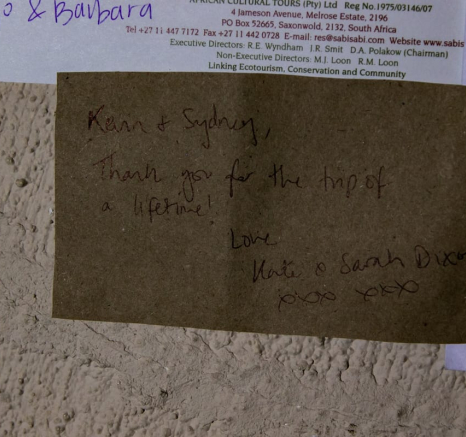 o & Barbara
AFRICAN CULTURAL TOURS (Pty) Ltd Reg No.1975/03146/07
4 Jameson Avenue, Melrose Estate, 2196
PO Box 52665, Saxonwold, 2132, South Africa
Tel +27 11 447 7172 Fax +27 11 442 0728 E-mail: res@sabisabi.com Website www.sabis
Executive Directors: R.E. Wyndham J.R. Smit D.A. Polakow (Chairman)
Non-Executive Directors: M.J. Loon R.M. Loon
Linking Ecotourism, Conservation and Community
& Sydney,
Thank you for the trip of
a lifetime!
Love
Kate & Sarah Dixon
xxxx xxxx